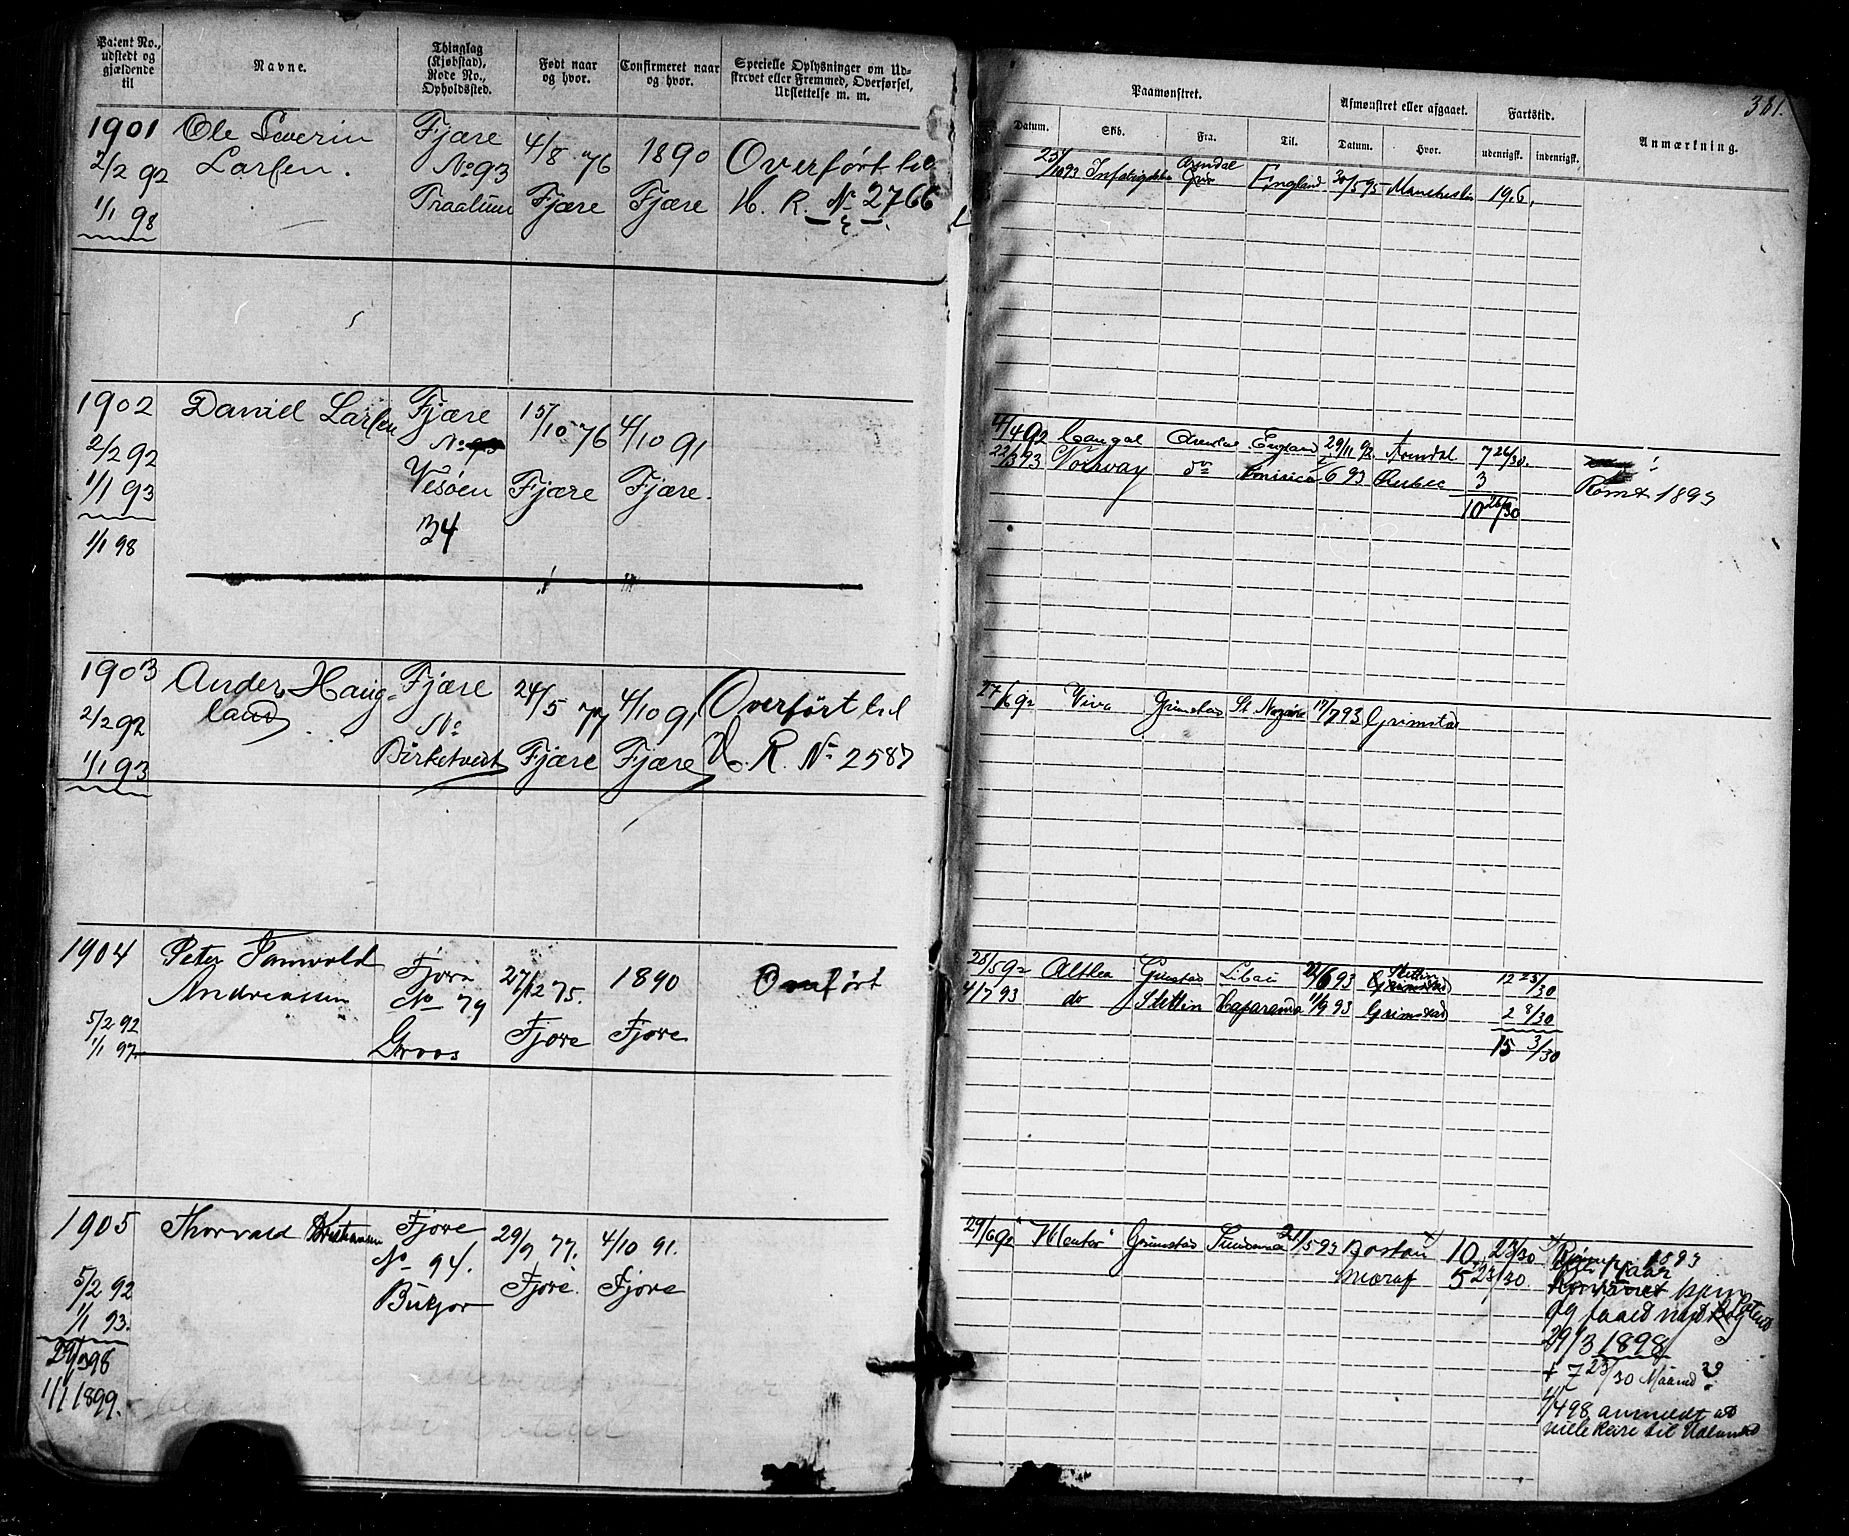 Patent No., udstedt og gjældende til
Navne.
Thinglag (Kjøbstad), Rode No., Opholdssted.
Født naar og hvor.
Confirmeret naar og hvor.
Specielle Oplysninger om Udskrevet eller Fremmed, Overførsel, Udslettelse m. m.
Paamønstret.
Afmønstret eller afgaaet.
Fartstid.
Anmærkning.
381.
Datum.
Skib.
Fra.
Til.
Datum.
Hvor.
udenrigsk.
indenrigsk.
1901 Ole Severin Fjære 4/8 76 1890 Overført til
2/2 92 Larsen. No 93
1/1 98 Fjære Fjære H. R. No 2766
Arendal
England 30/5 95 19.6.
1902 Daniel Larsen Fjære 15/10 76 4/10 91
2/2 92 No 93
1/1 93 Vesøen Fjære Fjære.
34
1/1 98
4/4 92 Arendal England 29/11 92 Arendal 7 26/30.
22/3 93 Norway do 6 93 3
Rømt 1893
10 26/30
1903 Anders Haug- Fjære 24/5 77 4/10 91 Overført til
2/2 92 land No
1/1 93 Birketveit Fjære Fjære H. R. No 2587
27/6 92 Viva Grimstad St. Nazaire 17/7 93 Grimstad
1904 Peter Fjære 27/12 75. 1890 Overført
Andreassen No 79
5/2 92
1/1 97 Groos Fjære Fjære
28/5 92 Althea Grimstad Libau 22/6 93 Stettin 12 25/30
4/7 93 do Stettin Haparanda 1/9 93 Grimstad 2 8/30
15 3/30
1905 Thorvald Kristiansen Fjære 29/9 77. 4/10 91.
No 94.
5/2 92 Fjære. Fjære
1/1 93.
29/3 98
1/1 1899.
29/6 92 "Mentor" Grimstad 21/5 93 10. 23/30
1893
5 23/30.
29/3 1898
+ 7 23/30 Maaned
4/4 98 anmeldt at
ville Reise til Udlandet